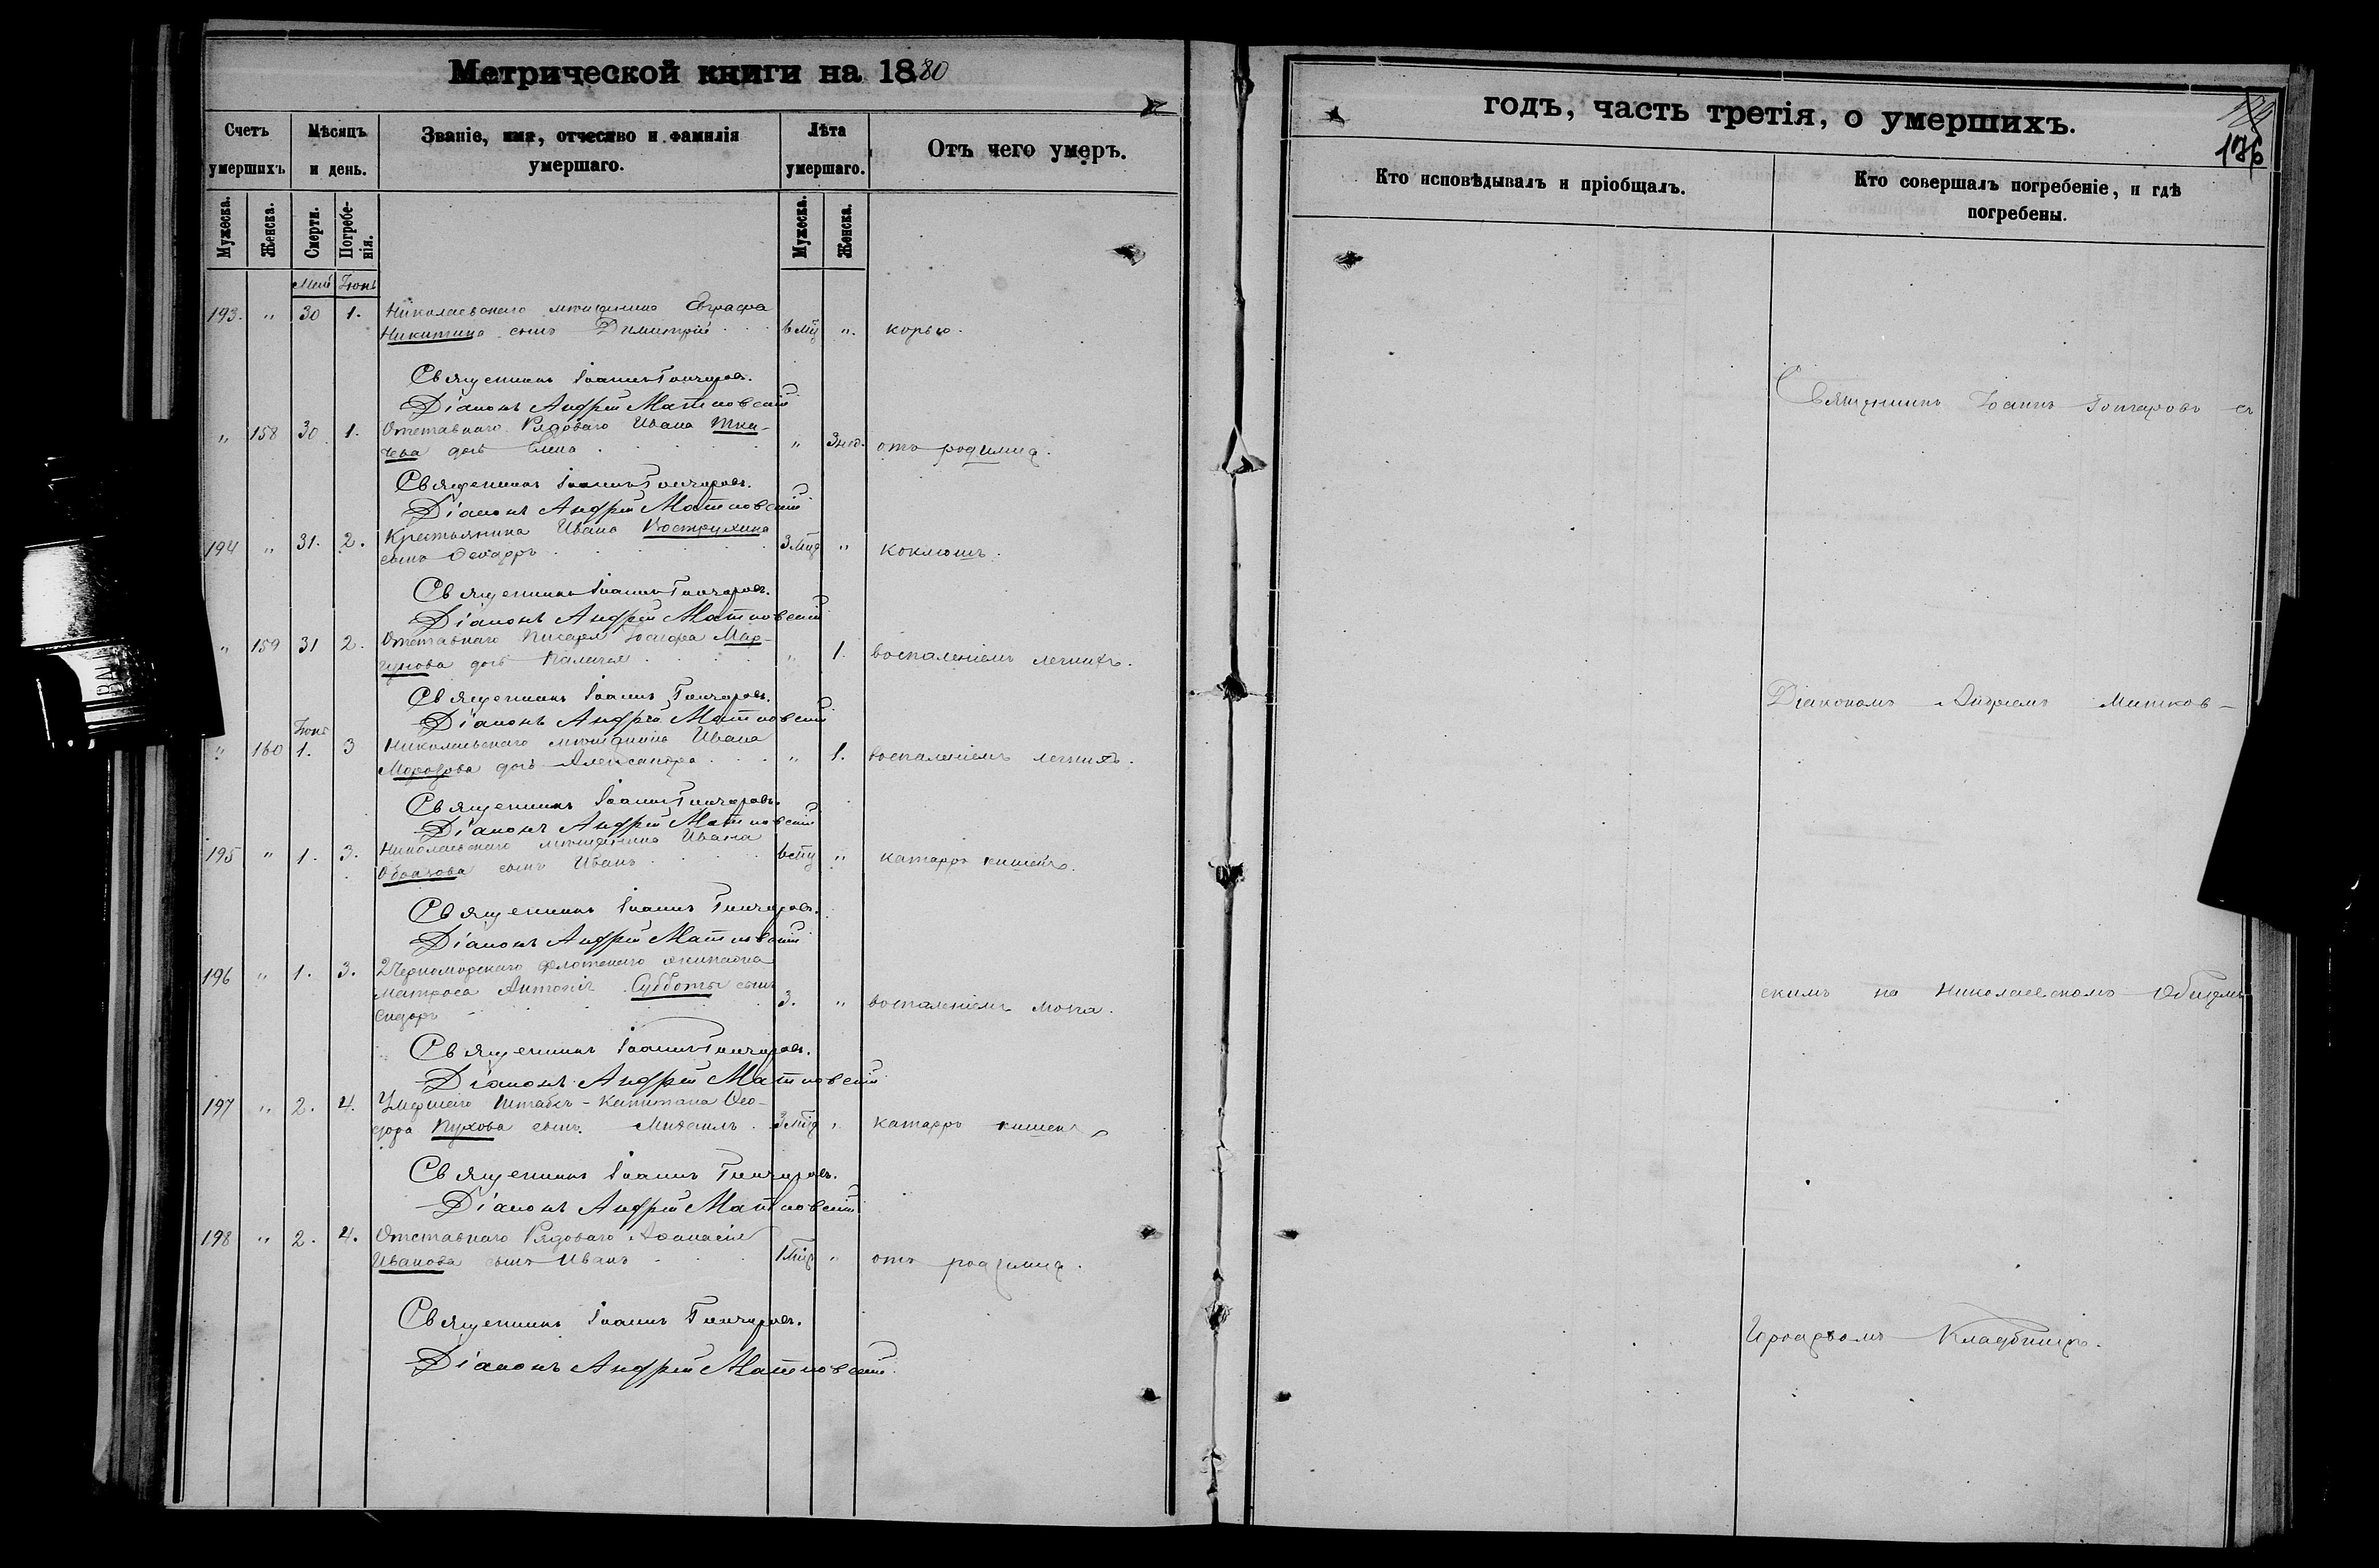 Метрической книги на 1880
Счетъ умершихъ.
Мѣсяцъ и день.
Званіе, имя, отчество и фамилія умершаго.
Лѣта умершаго.
Отъ чего умеръ.
Мужеска.
Женска.
Смерти.
Погребенія.
Мужеска.
Женска.
Май Іюнь
193. " 30 1. Николаевскаго мѣщанина Евграфа
Никитина сынъ Димитрій 6 мѣц ". корью.
Священникъ Іоаннъ Гончаровъ.
Діаконъ Андрей Матковскій
" 158 30 1. Отставнаго Рядоваго Ивана Тка-
чева дочь Елена " 3 нед. отъ родимца.
Священникъ Іоаннъ Гончаровъ.
Діаконъ Андрей Матковскій
194 " 31. 2. Крестьянина Ивана Вострухина
сынъ Ѳеодоръ 3 Мѣц " коклюшъ.
Священникъ Іоаннъ Гончаровъ.
Діаконъ Андрей Матковскій
" 159 31 2. Отставнаго Писаря Іосифа
дочь " 1. воспаленіемъ легкихъ.
Священникъ Іоаннъ Гончаровъ.
Діаконъ Андрей Матковскій
Іюнь
" 160 1. 3 Николаевскаго мѣщанина Ивана
Морозова дочь Александра " 1. воспаленіемъ легкихъ.
Священникъ Іоаннъ Гончаровъ.
Діаконъ Андрей Матковскій
195 " 1. 3. Николаевскаго мѣщанина Ивана
сынъ Иванъ 6 мѣц " катарръ кишекъ.
Священникъ Іоаннъ Гончаровъ.
Діаконъ Андрей Матковскій
196 " 1. 3. 2 Черноморскаго флотскаго экипажа
Матроса Антонія Субботы сынъ
Сидоръ 3. " воспаленіемъ мозга.
Священникъ Іоаннъ Гончаровъ.
Діаконъ Андрей Матковскій
197 " 2. 4. Умершего Штабсъ-Капитана Ѳео-
дора Пухова сынъ Михаилъ 3 мѣц " катарръ кишекъ
Священникъ Іоаннъ Гончаровъ.
Діаконъ Андрей Матковскій
198 " 2. 4. Отставнаго Рядоваго Аѳанасія
Иванова сынъ Иванъ 1 мѣц " отъ родимца.
Священникъ Іоаннъ Гончаровъ.
Діаконъ Андрей Матковскій
годъ, часть третія, о умершихъ.
176
Кто исповѣдывалъ и пріобщалъ.
Кто совершалъ погребеніе, и гдѣ погребены.
Священникъ Іоаннъ Гончаровъ съ
Діакономъ Андреемъ Матков-
скимъ на Николаевскомъ Общемъ
Городскомъ Кладбищѣ.